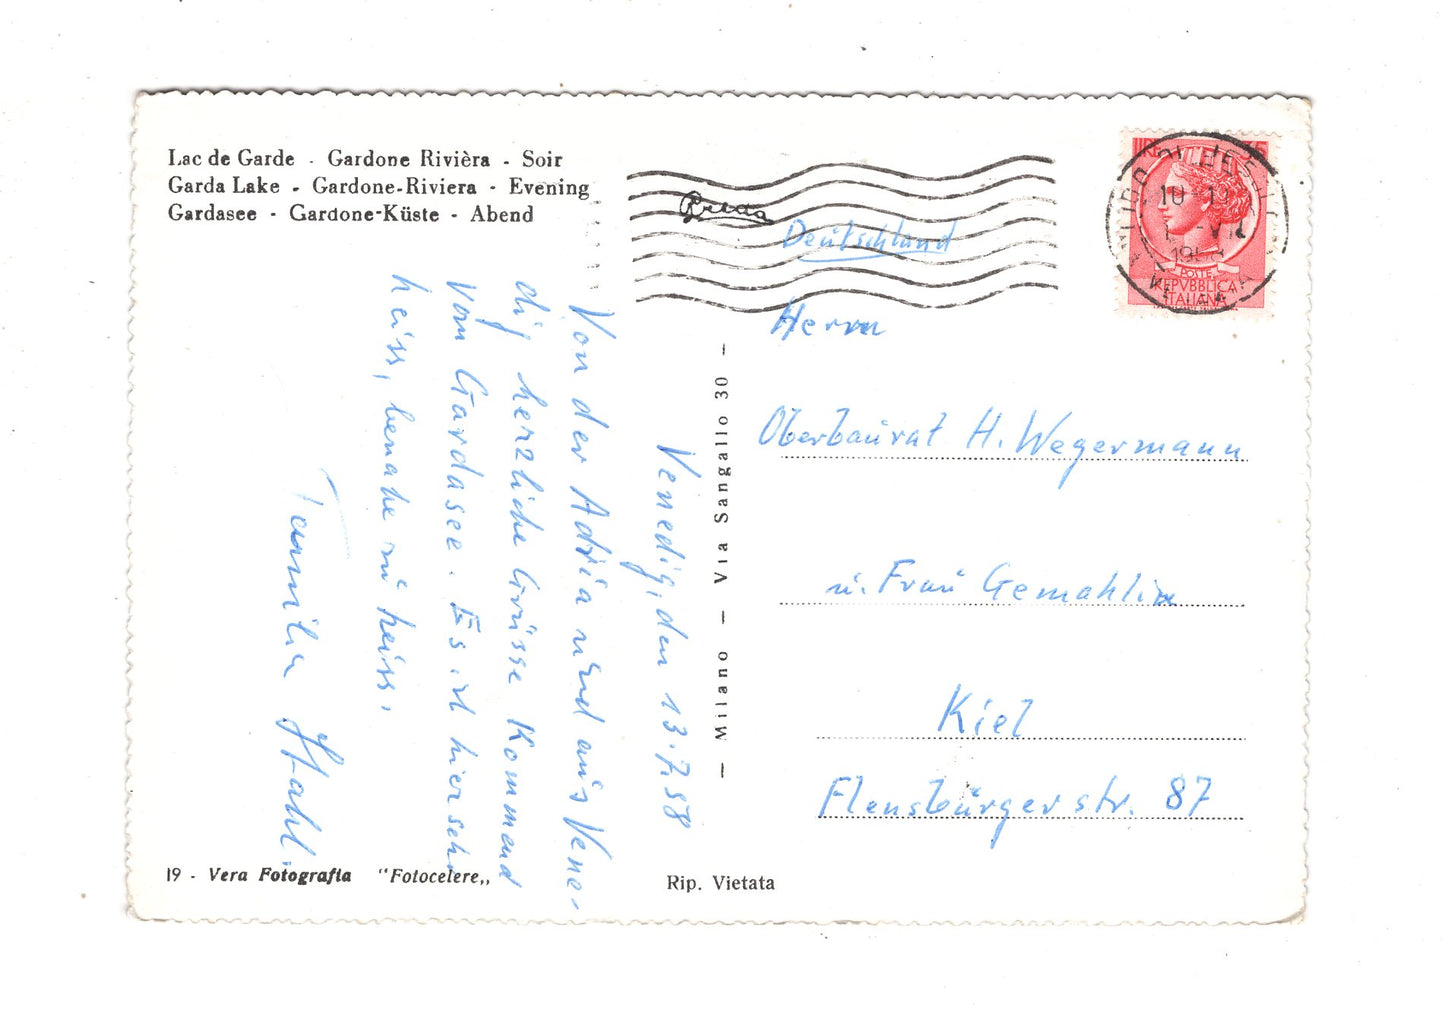 Lac de Garde - Gardone Rivièra - Soir
Garda Lake - Gardone-Riviera - Evening
Gardasee - Gardone-Küste - Abend
Venedig, den 13.7.58
Von der Adria und aus Vene-
dig herzliche Grüsse kommend
vom Gardasee. Es ist hier sehr
heiss, beinahe zu heiss.
Familie Stahl.
19 - Vera Fotografia "Fotocelere„
Rip. Vietata
— Milano — Via Sangallo 30 —
LIRE
POSTE
REPVBBLICA
ITALIANA
1958
Deutschland
Herrn
Oberbaurat H. Wegermann
u. Frau Gemahlin
Kiel
Flensburgerstr. 87